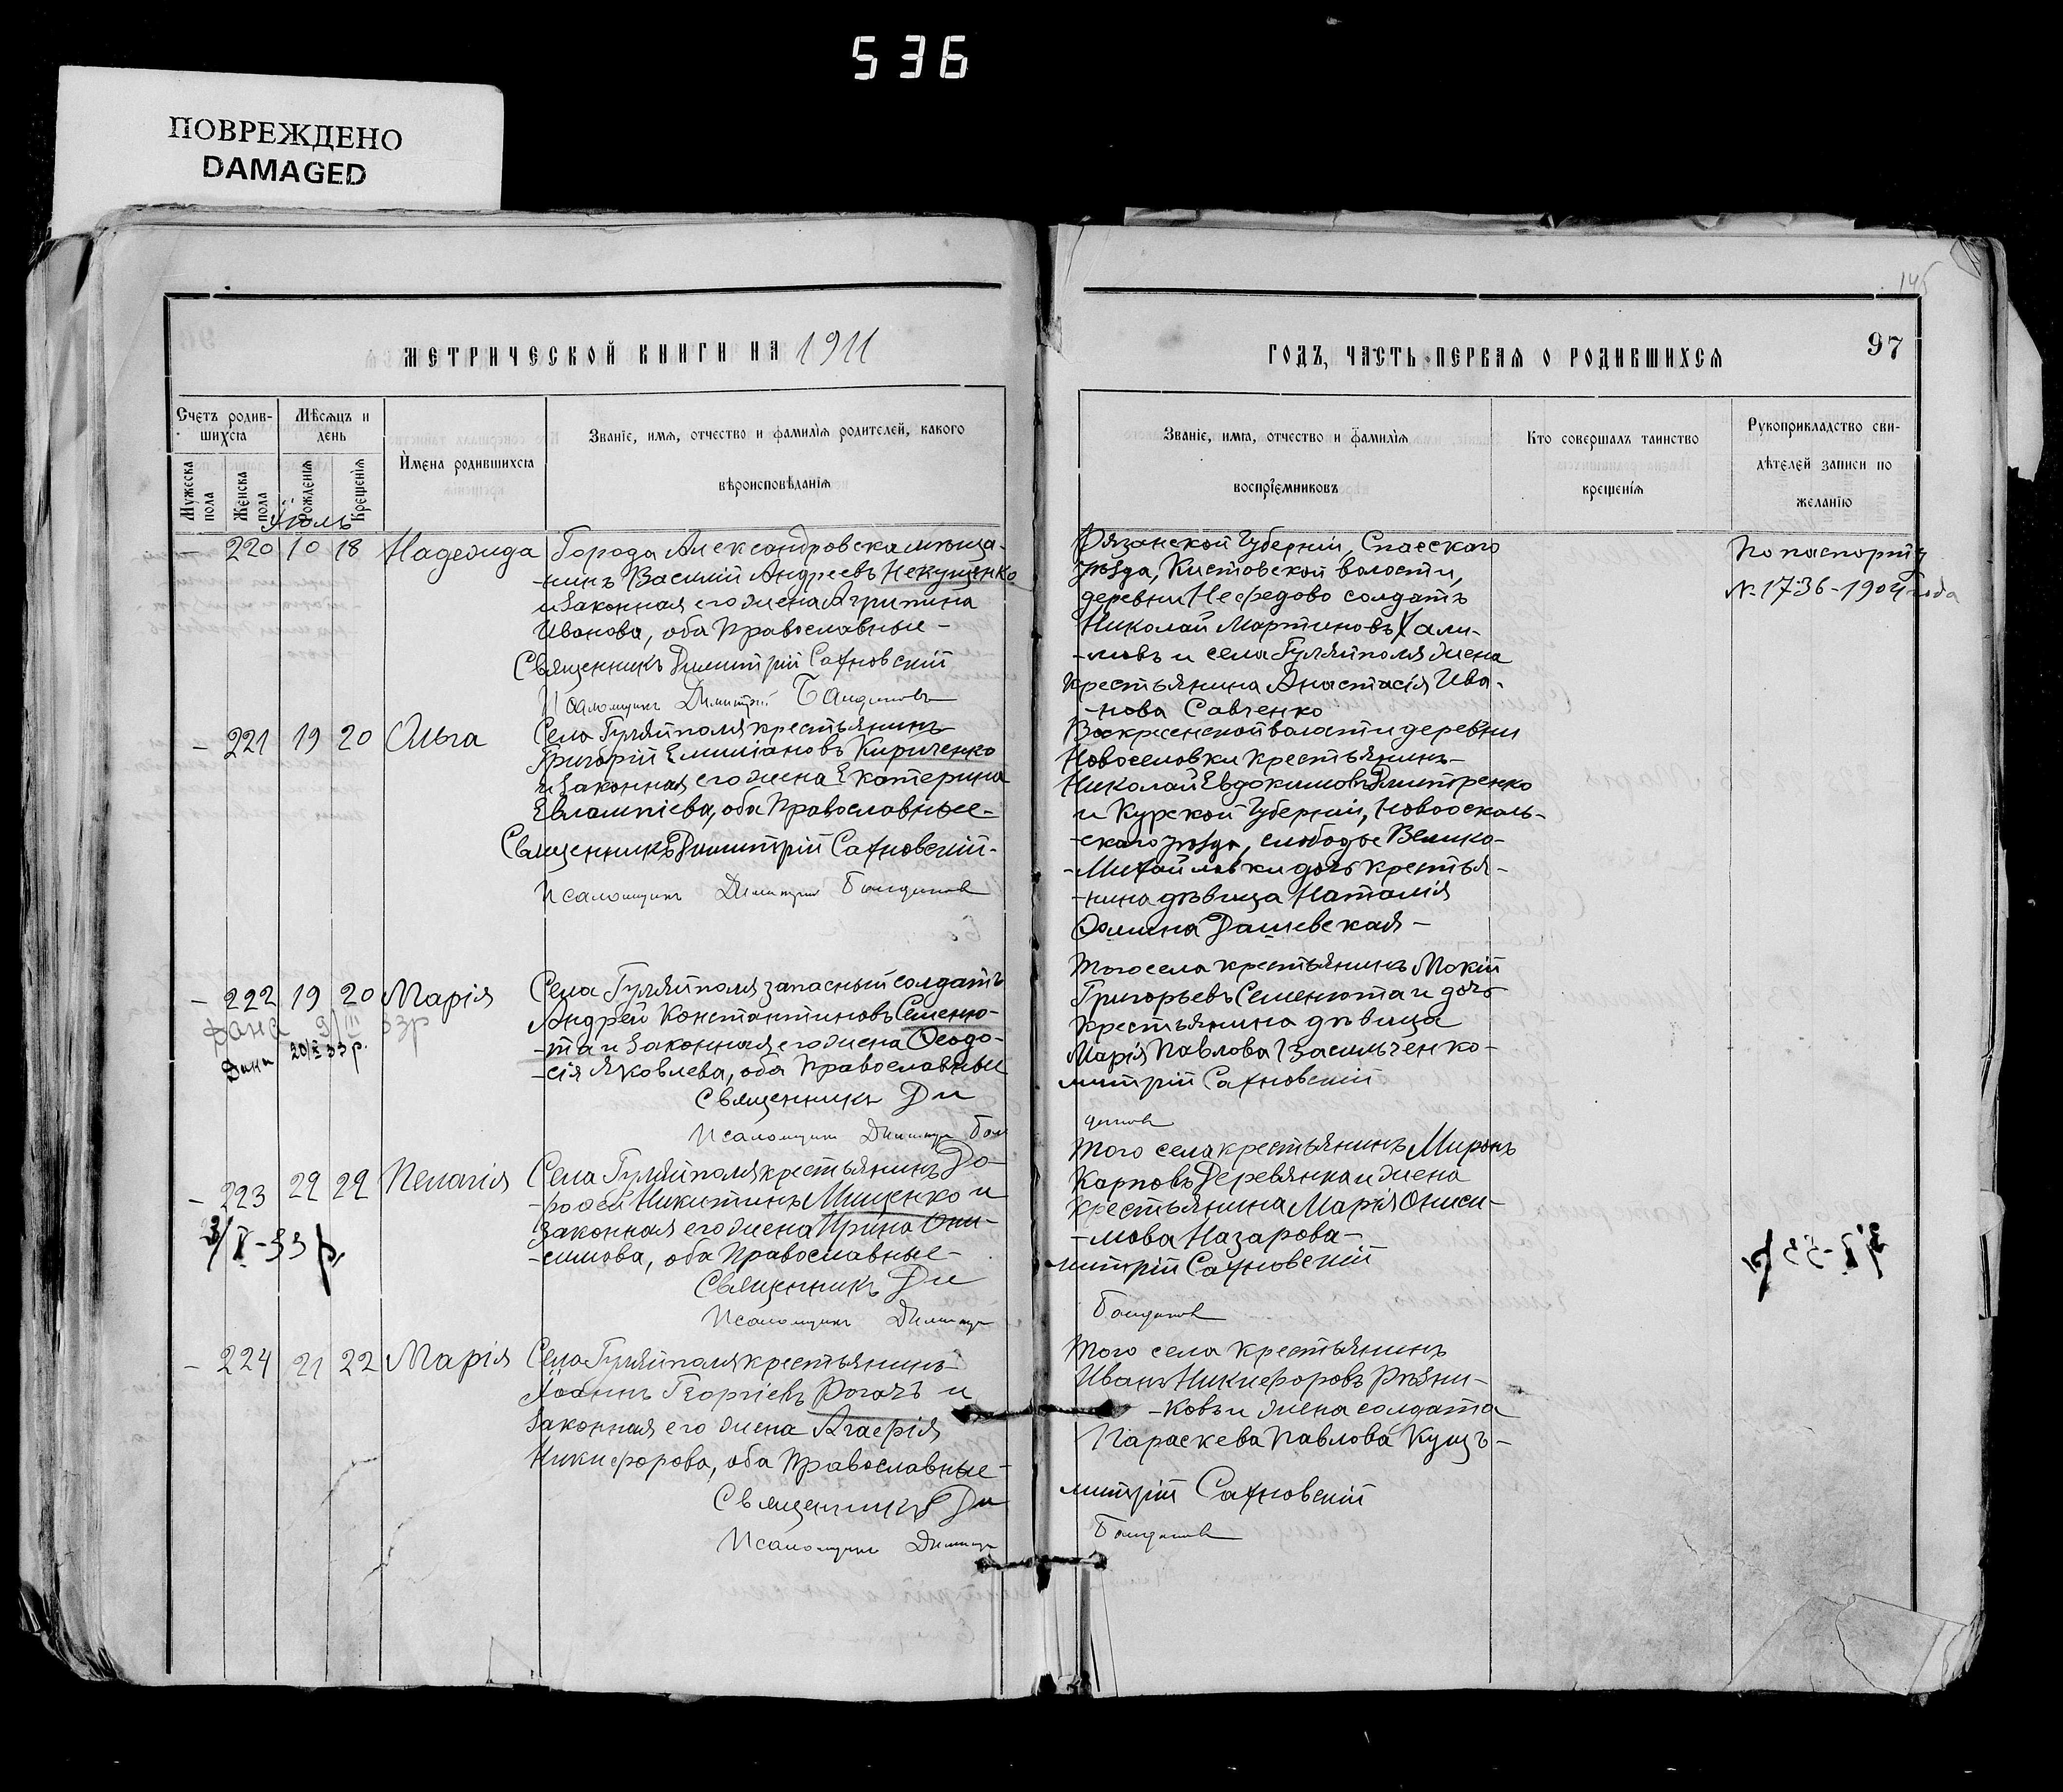 536
ПОВРЕЖДЕНО
DAMAGED
145
МЕТРИЧЕСКОЙ КНИГИ НА 1911
ГОДЪ, ЧАСТЬ ПЕРВАЯ О РОДИВШИХСЯ
97
Счетъ родив-
шихся
Мѣсяцъ и
день
Мужеска
пола
Женска
пола
Рожденія
Крещенія
Имена родившихся
Званіе, имя, отчество и фамилія родителей, какого
вѣроисповѣданія
Званіе, имя, отчество и фамилія
воспріемниковъ
Кто совершалъ таинство
крещенія
Рукоприкладство сви-
дѣтелей записи по
желанію
Іюль
– 220 10 18 Надежда
Города Александровска мѣща-
-нинъ Василій Андреевъ Некущенко
и законная его жена Агрипина
Иванова, оба Православные –
Священникъ Димитрій Сахновскій
Псаломщикъ Димитрій
Рязанской Губерніи, Спасскаго
уѣзда, Кистовской волости,
деревни Нефедово солдатъ
Николай Мартиновъ Хали-
-мовъ и села Гуляйполя жена
крестьянина Анастасія Ива-
-нова Савченко
По паспорту
№ 1736-1904 года
– 221 19 20 Ольга
Села Гуляйполя крестьянинъ
Григорій Емиліановъ Кириченко
и законная его жена Екатерина
Евлампіева, оба Православные –
Священникъ Димитрій Сахновскій –
Псаломщикъ Димитрій
Воскресенской волости деревни
Новоселовки крестьянинъ –
Николай Евдокимовъ Дмитренко
и Курской Губерніи, Новоосколь-
-скаго уѣзда, слободы Велико-
-Михайловки дочь крестья-
-нина дѣвица Наталія
Ѳомина Дашевская –
– 222 19 20 Марія
дана 9/III 33р
Дана 20/X 33 р.
Села Гуляйполя запасный солдатъ
Андрей Константиновъ Семеню-
-та и законная его жена Ѳеодо-
-сія Яковлева, оба Православные
Священникъ Ди
Псаломщикъ Димитрій
Того села крестьянинъ Мокій
Григорьевъ Семенюта и дочь
крестьянина дѣвица
Марія Павлова Васильченко –
митрій Сахновскій
– 223 22 22 Пелагія
3/V-33 р.
Села Гуляйполя крестьянинъ До-
-роѳей Никитинъ Мищенко и
законная его жена Ирина Они-
-симова, оба Православные –
Священникъ Ди
Псаломщикъ Димитр
Того села крестьянинъ Миронъ
Карповъ Деревянка и жена
крестьянина Марія Ониси-
-мова Назарова –
митрій Сахновскій
– 224 21 22 Марія
Села Гуляйполя крестьянинъ
Іоаннъ Георгіевъ Рогачъ и
законная его жена Агафія
Никифорова, оба Православные –
Священникъ Ди
Псаломщикъ Димитр
Того села крестьянинъ
Иванъ Никифоровъ Рѣзни-
-ковъ и жена солдата
Параскева Павлова Кущъ –
митрій Сахновскій